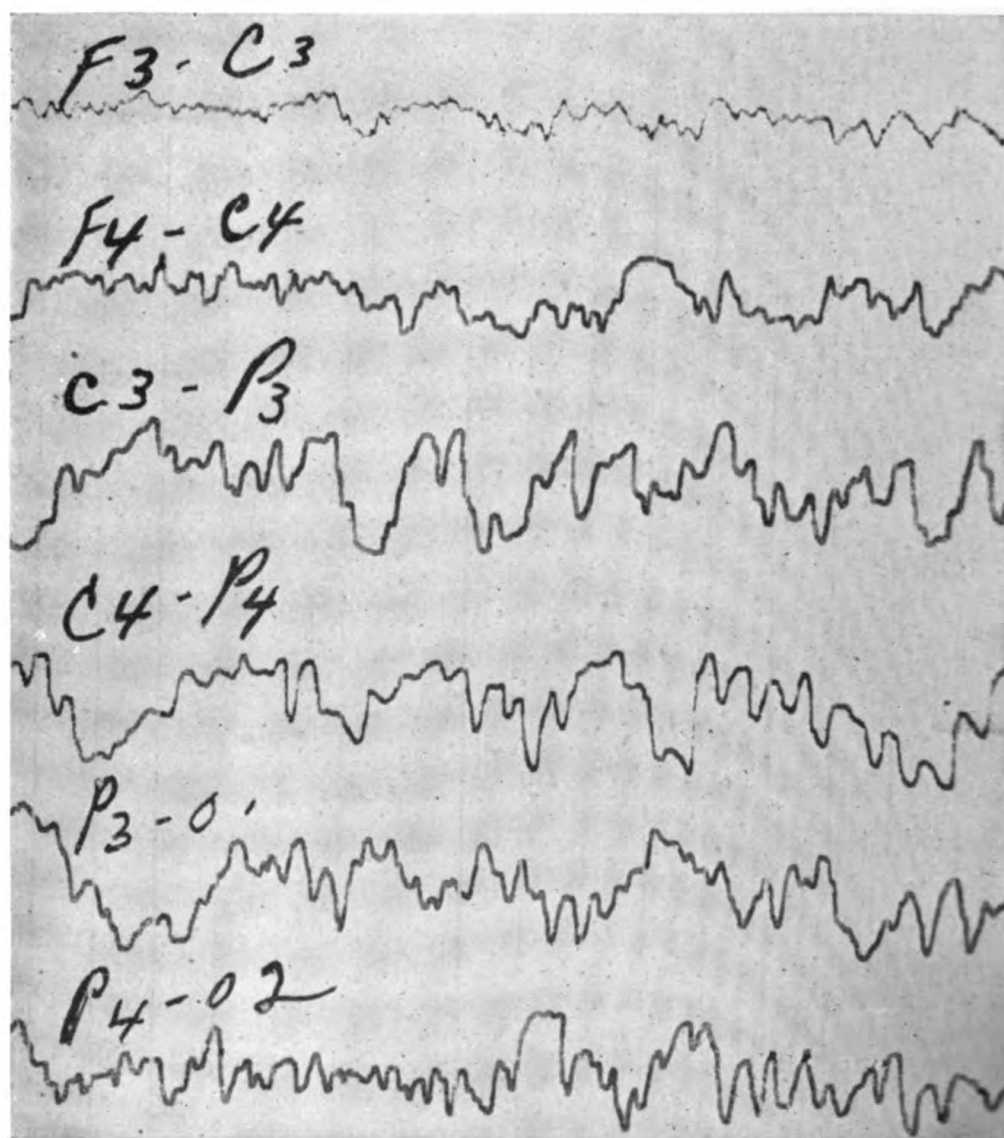 F3 - C3
F4 - C4
C3 - P3
C4 - P4
P3 - 01
P4 - 02